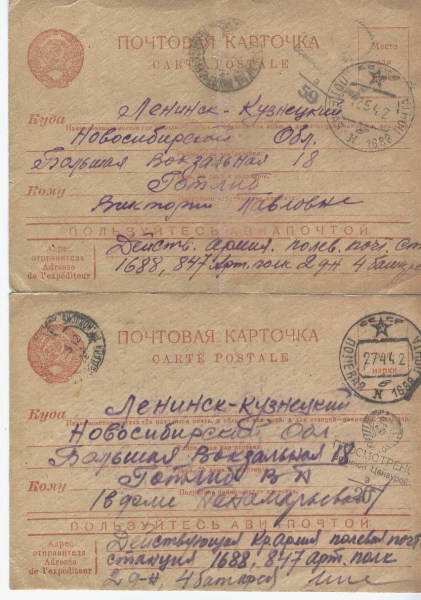 ПОЧТОВАЯ КАРТОЧКА
CARTE POSTALE
Место
для
59
12542
1688
Куда
Ленинск-Кузнецкий
Новосибирской Обл.
Большая Вокзальная 18
Кому
Готлиб
Виктории Павловне
ПОЛЬЗУЙТЕСЬ АВИАПОЧТОЙ
Адрес
отправителя
Adresse de
l'expéditeur
Действ. армия. полев. почт. ст
1688, 847 Арт. полк 2 д-н 4 батаре
ПОЧТОВАЯ КАРТОЧКА
CARTE POSTALE
марки
27442
ПОЛЕВАЯ ПОЧТА
N 1688
Куда
Ленинск-Кузнецкий
Новосибирской Обл.
Большая Вокзальная 18
ПРОСМОТРЕНО
Военной Цензурой
20
Кому
Готлиб В П
ПОЛЬЗУЙТЕСЬ АВИАПОЧТОЙ
Адрес
отправителя
Adresse de
l'expéditeur
Действующая Кр. армия полевая почт.
станция 1688, 847 арт. полк
2 д-н, 4 батарея